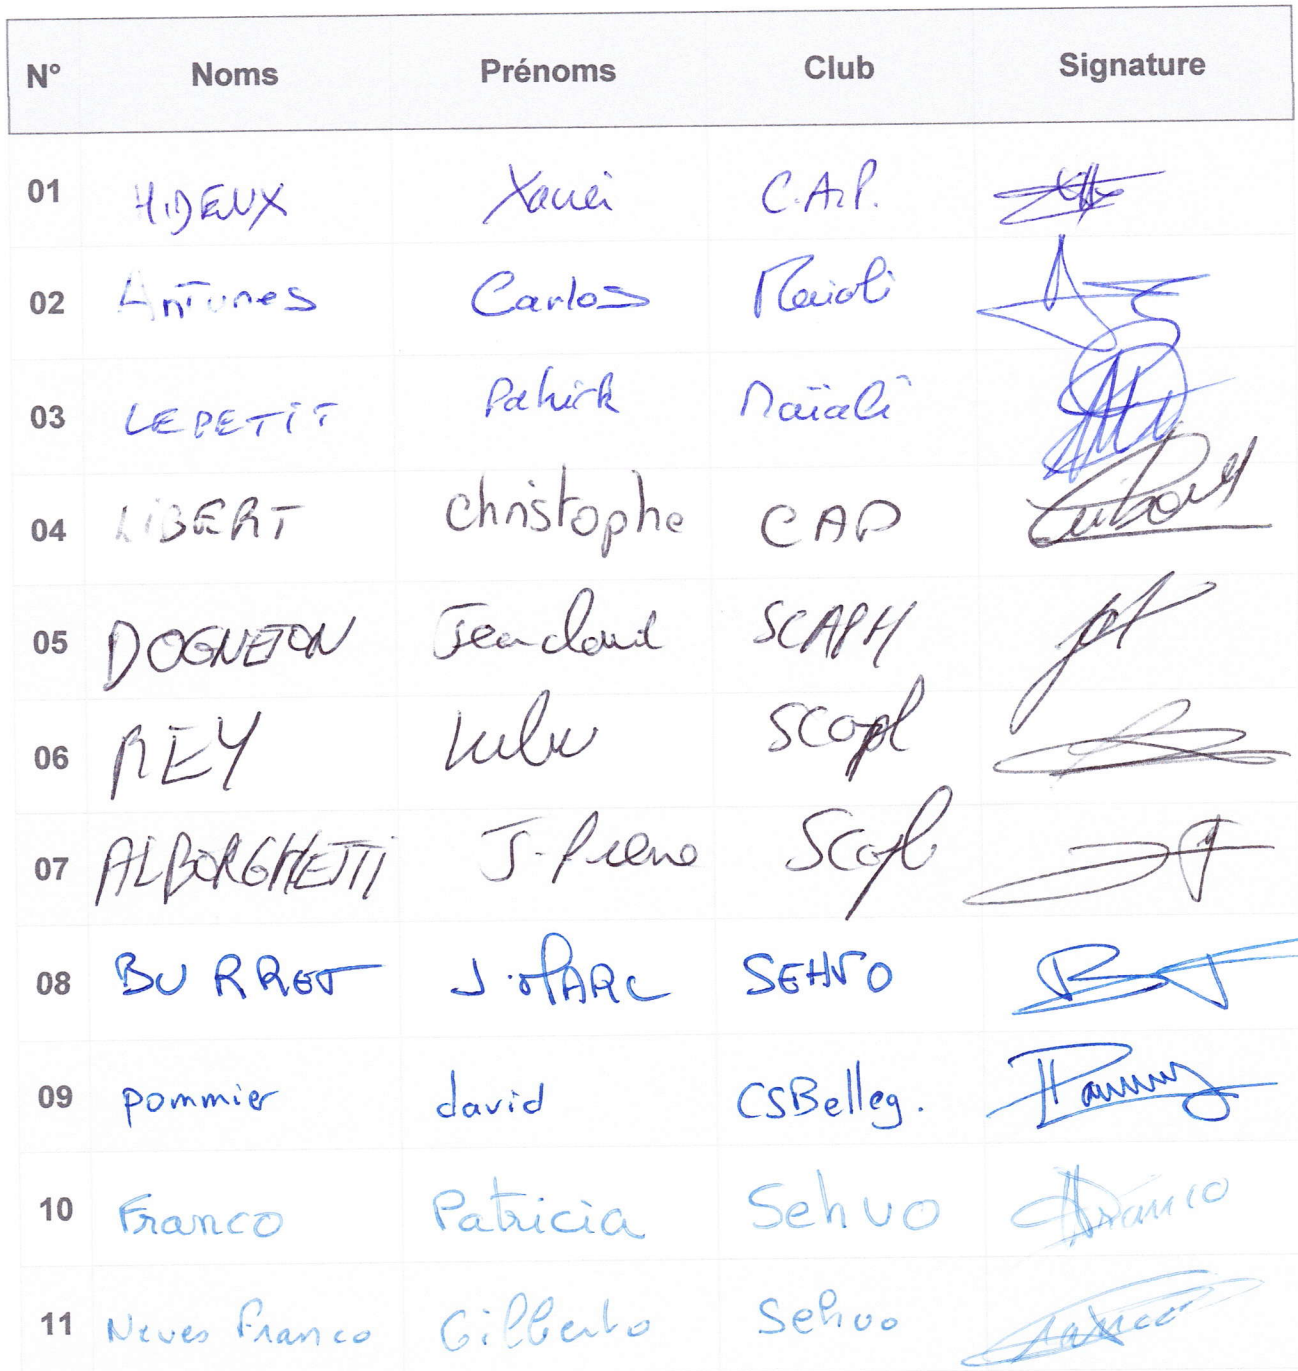 N° Noms Prénoms Club Signature
01 HIDEUX Xavier C.A.P.
02 Antunes Carlos Maioli
03 LEPETIT Patrick Maïoli
04 LIBERT christophe CAP
05 DOGNETON Jean claud SCAPH
06 REY Lulu SCaph
07 ALBORGHETTI J-Pierre SCaph
08 BURRET J.MARC SEHVO
09 pommier david CSBelleg.
10 Franco Patricia Sehvo Franco
11 Neves Franco Gilberto Sehvo